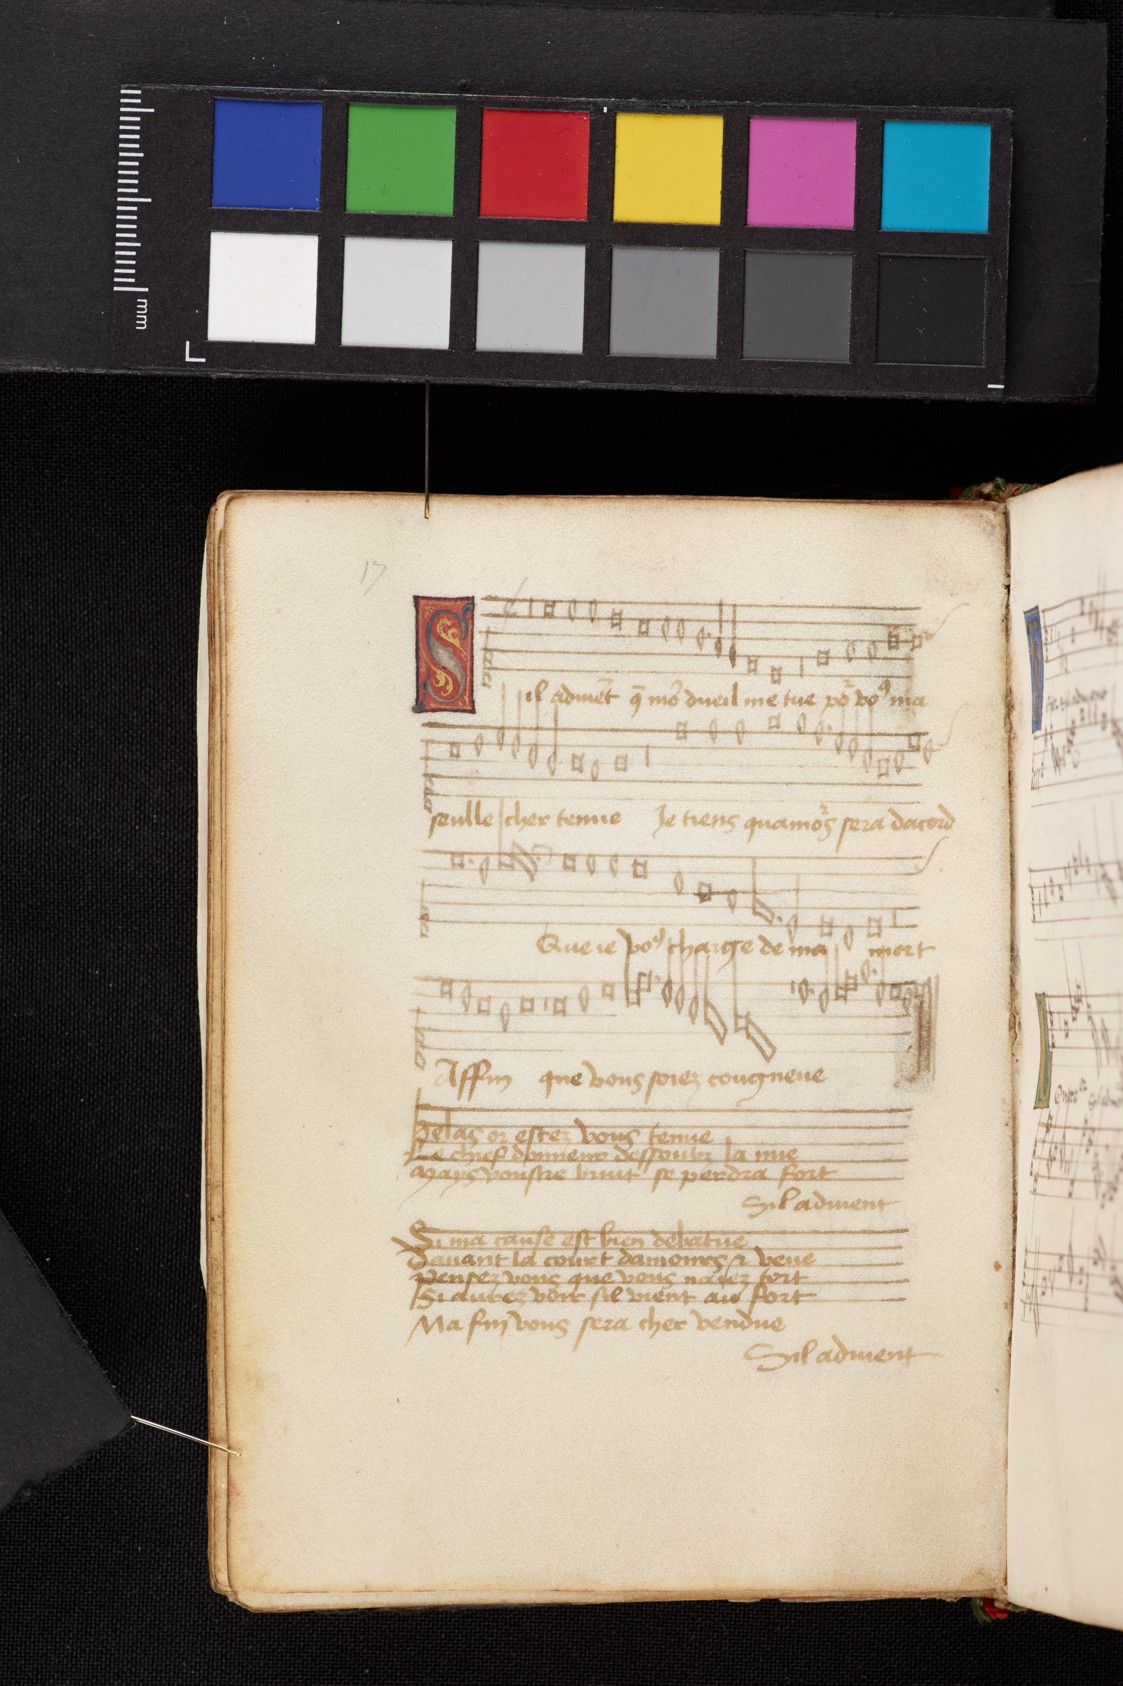 mm
17
Sil adviēt q̄ mō dueil me tue po͛ voꝰ ma
seulle cher tenue Je tiens quamo͛s sera dacord
Que ie voꝰ charge de ma mort
Affin que vous soiez congneue
Helas or estez vous tenue
Le chief donneur dessoubz la nue
Mays voustre bruit se perdra fort
Sil advient
Si ma cause est bien debatue
Davant la court damours & veue
Pensez vous que vous naiez tort
Si aurez voir sil vient au fort
Ma fin vous sera cher vendue
Sil advient